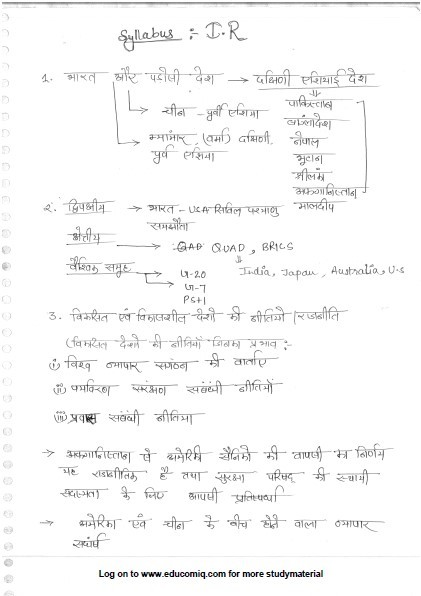 Syllabus :- I.R
1. भारत और पडोसी देश → दक्षिणी एशियाई देश
→ चीन - पूर्वी एशिया
→ म्यांमार (वर्मा) दक्षिणी, पूर्व एशिया
पाकिस्तान
बांग्लादेश
नेपाल
भूटान
श्रीलंका
अफगानिस्तान
मालदीप
2. द्विपक्षीय → भारत - USA सिविल परमाणु
समझौता
क्षेत्रीय → QUAD, BRICS
India, Japan, Australia, U.S
वैश्विक समूह → G-20
→ G-7
→ P5+1
3. विकसित एवं विकासशील देशों की नीतियों / राजनीति
(विकसित देशों की नीतियों जिनका प्रभाव :-
(i) विश्व व्यापार संगठन की वार्ताएं
(ii) पर्यावरण संरक्षण संबंधी नीतियों
(iii) प्रवास संबंधी नीतियां
→ अफगानिस्तान से अमेरिकी सैनिकों की वापसी का निर्णय
यह राजनीतिक है तथा सुरक्षा परिषद की स्थायी
सदस्यता के लिए आपसी प्रतिस्पर्धा
→ अमेरिका एवं चीन के बीच होने वाला व्यापार
संघर्ष
Log on to www.educomiq.com for more studymaterial